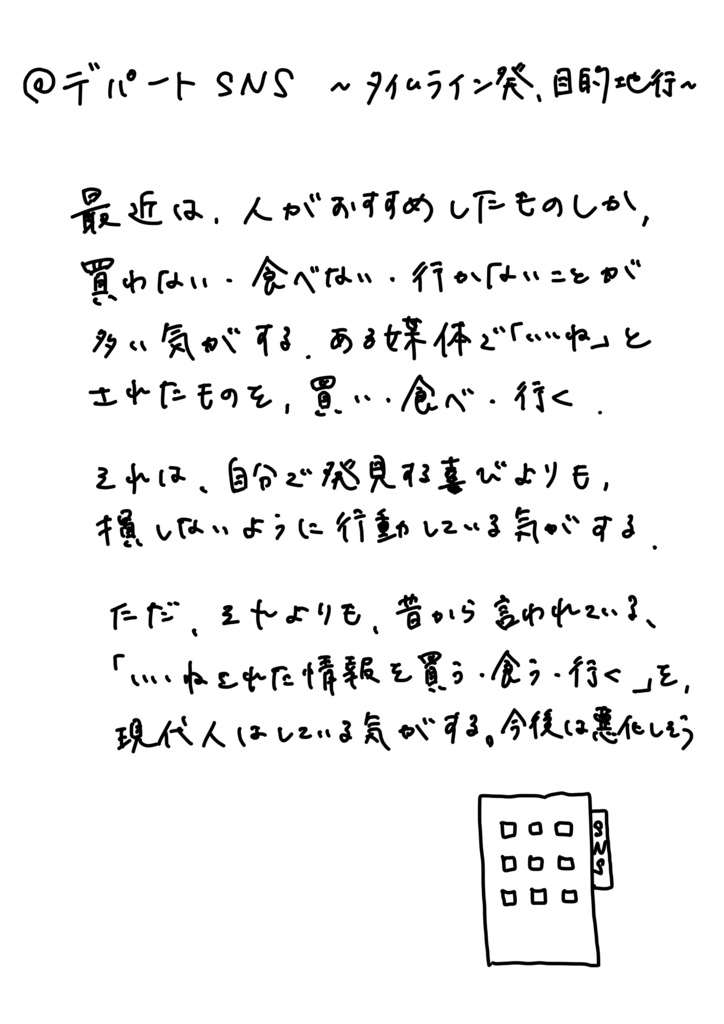 @デパートSNS ~タイムライン発、目的地行~
最近は、人がおすすめしたものしか、
買わない・食べない・行かないことが
多い気がする. ある媒体で「いいね」と
されたものを、買い・食べ・行く.
それは、自分で発見する喜びよりも、
損しないように行動している気がする.
ただ、それよりも、昔から言われている、
「いいねされた情報を買う・食う・行く」を、
現代人はしている気がする。今後は悪化しそう
SNS